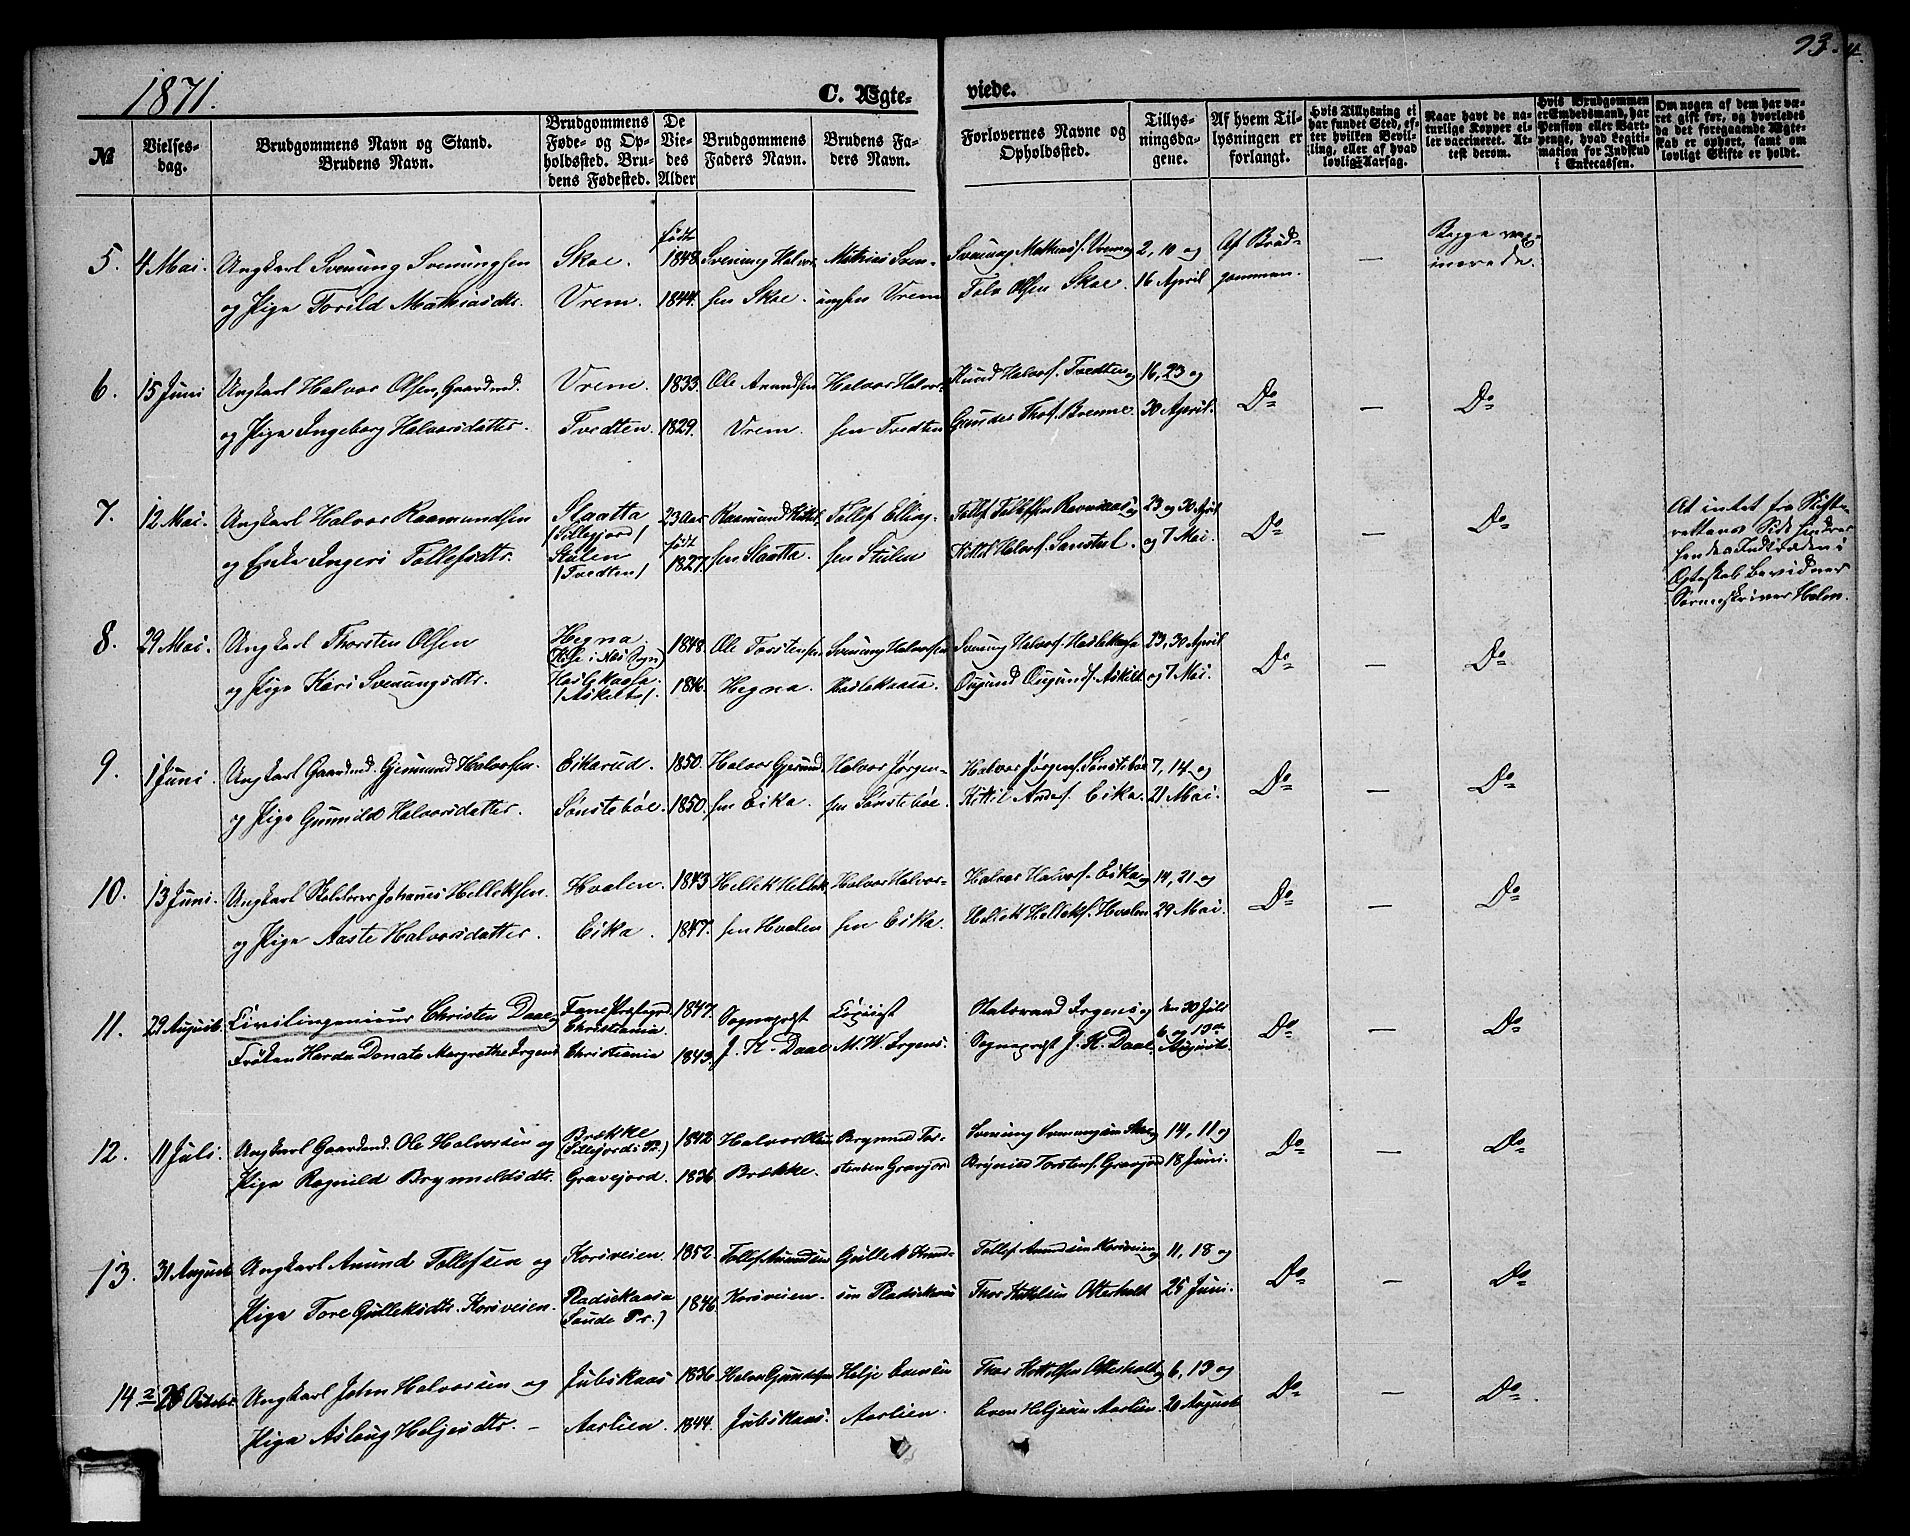 1871.
C. Ægte-
viede.
93.
№
Vielses-
dag.
Brudgommens Navn og Stand.
Brudens Navn.
Brudgommens
Føde- og Op-
holdssted. Bru-
dens Fødested.
De
Vie-
des
Alder
Brudgommens
Faders Navn.
Brudens Fa-
ders Navn.
Forlovernes Navne og
Opholdssted.
Tillys-
ningsda-
gene.
Af hvem Til-
lysningen er
forlangt.
Hvis Tillysning ei
har fundet Sted, ef-
ter hvilken Bevil-
ling, eller af hvad
lovlig Aarsag.
Naar havt de na-
turlige Kopper el-
ler vaccineret. At-
test derom.
Hvis Brudgommen
er Embedsmand, har
Pension eller Vart-
penge, hvad Legiti-
mation for Indskud
i Enkecassen.
Om nogen af dem har væ-
ret gift før, og hvorledes
da det foregaaende Ægte-
skab er ophørt, samt om
lovligt Skifte er holdt.
5. 4 Mai. Ungkarl Svenung Svenungsen
og Pige Torild Mathiasdtr.
Skoe.
Vrem.
født
1848.
1844.
Svenung Halvor-
sen Skoe.
Mathias Sven-
ungsen Vrem
Svenung Mathiass. Vrem og
Olsen Skoe.
2, 10 og
16 April
Af Brud-
gommen.
—
Begge vac-
inerede.
6. 15 Juni Ungkarl Halvor Olsen, Gaardmd.
og Pige Ingeborg Halvorsdatter.
Vrem.
Tvedten.
1833.
1829.
Ole Amundsen
Vrem.
Halvor Halvor-
sen Tvedten
Knud Halvors. Tvedten og
Gunder Thos. Brenne.
16, 23 og
30 April.
Do
—
Do
7. 12 Mai. Ungkarl Halvor Raamundsen
og Enke Ingeri Tollefsdtr.
Slaatta
/Sillejord/
Stulen
/Tvedten/
23 Aar
født
1827.
Raamund Kittel-
sen Slaatta
Tollef Elling-
sen Stulen
Tollef Tollefsen Ravnaas og
Kittil Halvors. Sanstul.
23 og 30 April
og 7 Mai.
Do
—
Do
At intet fra Skifte-
rettens Side hindrer
hendes Indtræden i
Ægteskab bevidner
Sorenskriver Holm.
8. 29 Mai. Ungkarl Thorsten Olsen
og Pige Kari Svenungsdtr.
Hegna.
Haslekaasa
1848.
1846.
Ole Torstensen
Hegna.
Svenung Halvorsen
Haslekaasa.
Svenung Halvors. Haslekaasa
Ougund Ougunds. Askilt
23, 30 April
og 7 Mai.
Do
—
Do
9. 1 Juni. Ungkarl Gaardmd. Gjermund Halvorsen.
og Pige Gunnild Halvorsdatter.
Eikarud.
Sønstebøe.
1850.
1850.
Halvor Gjermund-
sen Eika.
Halvor Jørgen-
sen Sønstebøe.
Halvor Jørgens. Sønstebøe
Kittil Anders. Eika.
7, 14 og
21 Mai.
Do
—
Do
10. 13 Juni. Ungkarl Skolelærer Johannes Helleksen.
og Pige Aaste Halvorsdatter.
Hvalen.
Eika.
1843
1847.
Hellek Hellek-
sen Hvalen
Halvor Halvor-
sen Eika.
Halvor Halvors. Eika og
Hellek Helleks. Hvalen
14, 21 og
29 Mai.
Do
—
Do
11. 29 August. Civilingenieur Christen Daae og
Frøken Harda Donata Margrethe Irgens
Fane Præstegd.
Christiania
Christiania
1847.
1843.
Sognepræst
J. K. Daae
M. W. Irgens.
Statsraad Irgens og
Sognepræst J. K. Daae.
den 30 Juli
6 og 13de
August.
Do
—
Do
12. 11 Juli. Ungkarl Gaardmd. Ole Halvorsen og
Pige Ragnild Brynildsdtr.
Brække
(Sillejords Pr.)
Gravejord.
1842
1836
Halvor Olsen
Brække.
Brynild Tor-
stensen Gravjord
Svenung Svenungsen Skoe og
Brynild Torstens. Gravjord
14, 11 og
18 Juni.
Do
—
Do
13. 31 August Ungkarl Anund Tollefsen og
Pige Tore Gulleksdtr. Korsveien.
Korsveien
Pladsekaasa
(Saude Pr.)
1852.
1846.
Tollef Anundsen
Korsveien.
Gullek Knud-
sen Pladsekaas
Tollef Anundsen Korsveien og
Thor Kittelsen Otterholt
11, 18 og
25 Juni.
Do
—
Do
14 26 October Ungkarl John Halvorsen og
Pige Aslaug Heljesdtr. —
Jubskaas
Aarlien.
1836
1844.
Halvor Gundersen
Jubskaas.
Helje Evensen
Aarlien.
Thor Kittelsen Otterholt og
Even Heljesen Aarlien.
6, 13 og
20 August
Do
—
Do.